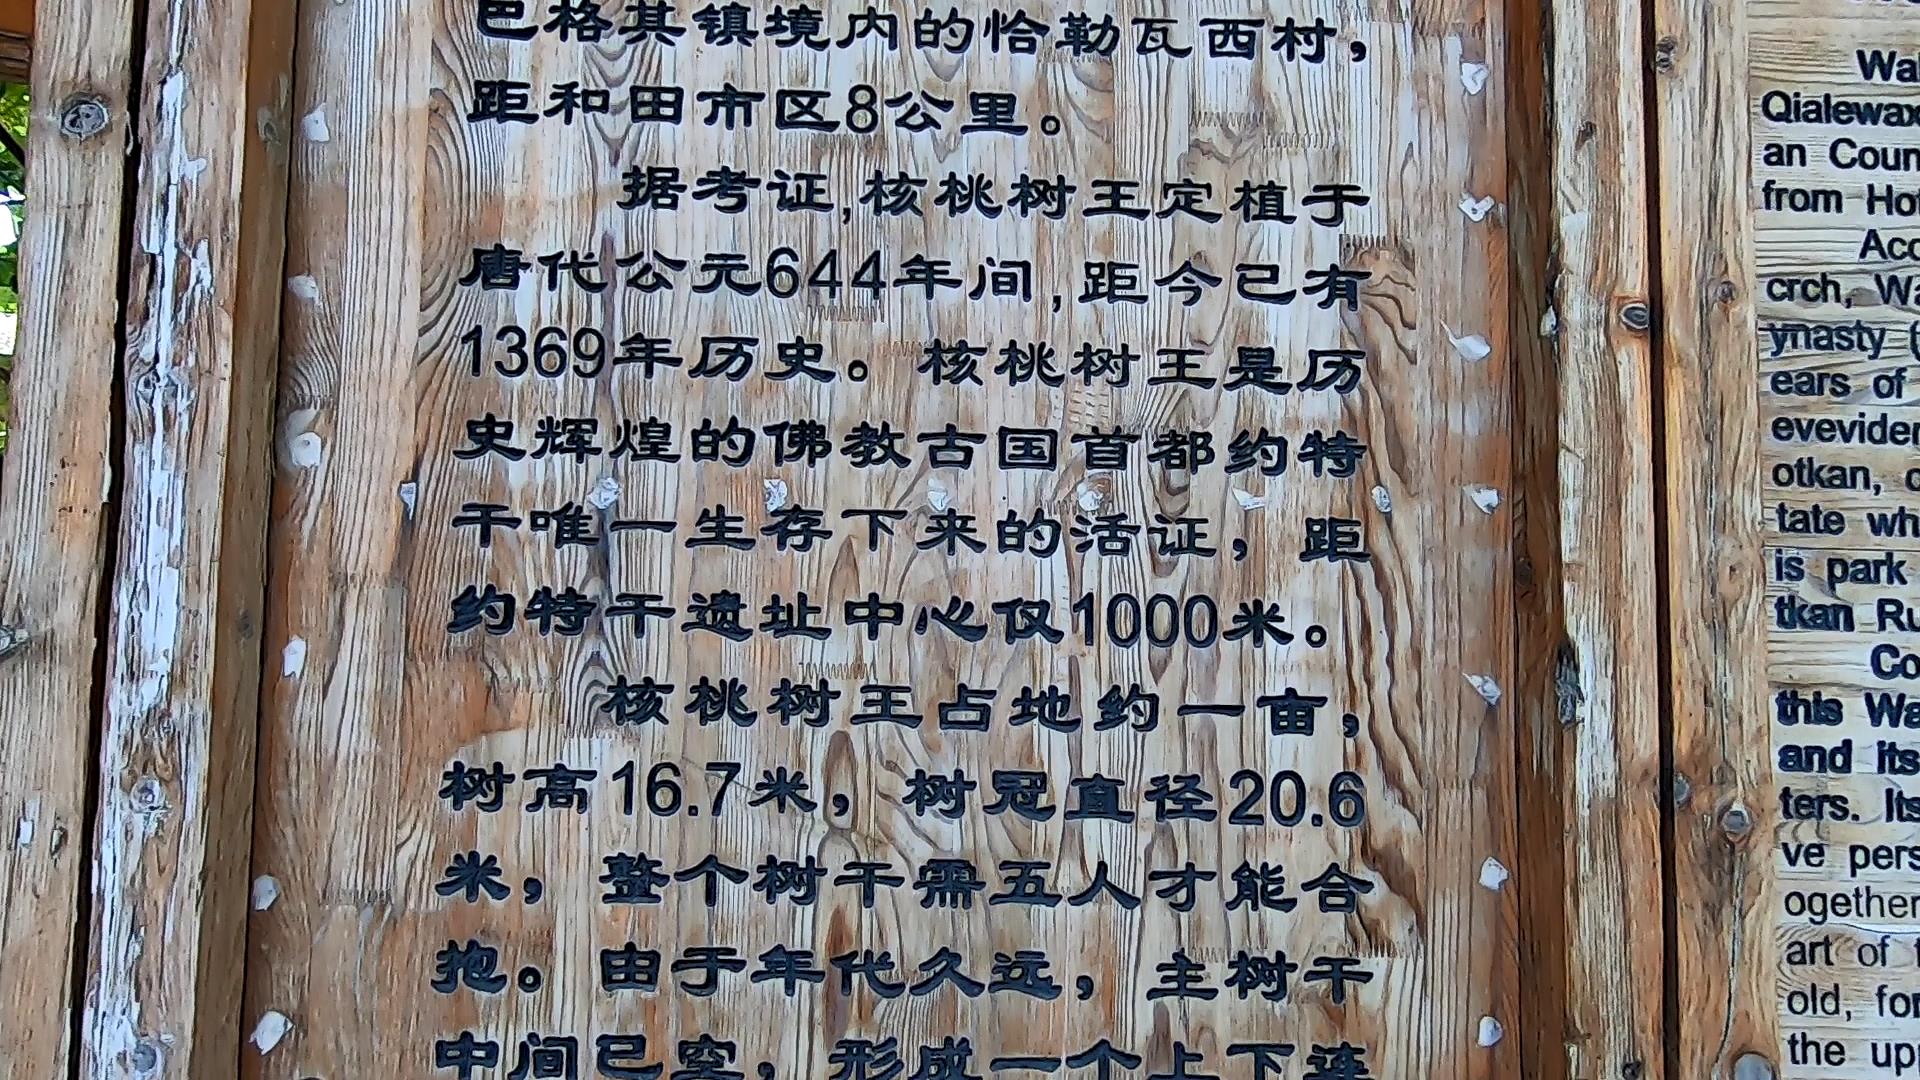 巴格其镇境内的恰勒瓦西村，
距和田市区8公里。
据考证,核桃树王定植于
唐代公元644年间,距今已有
1369年历史。核桃树王是历
史辉煌的佛教古国首都约特
干唯一生存下来的活证，距
约特干遗址中心仅1000米。
核桃树王占地约一亩，
树高16.7米，树冠直径20.6
米，整个树干需五人才能合
抱。由于年代久远，主树干
中间已空，形成一个上下连
Wal
Qialewax
an Coun
from Hot
Acc
crch, Wa
ynasty (
ears of
eveviden
otkan, c
tate wh
is park
tkan Ru
Co
this Wa
and its
ters. Its
ve pers
ogether
art of t
old, for
the upp